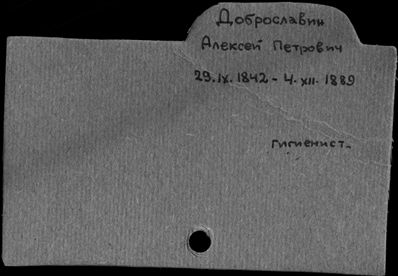 Доброславин
Алексей Петрович
29.IX.1842 - 4.XII.1889
гигиенист.